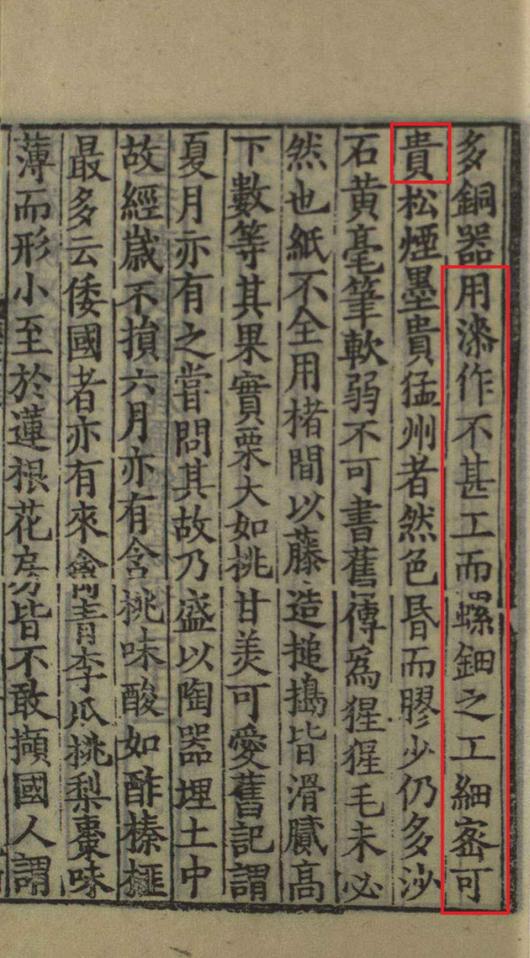 多銅器用漆作不甚工而螺鈿之工細宻可
貴松煙墨貴猛州者然色昏而膠少仍多沙
石黃毫筆軟弱不可書舊傳爲猩猩毛未必
然也紙不全用楮間以藤造搥搗皆滑膩高
下數等其果實栗大如桃甘美可愛舊記謂
夏月亦有之甞問其故乃盛以陶器埋土中
故經歳不損六月亦有含桃味酸如酢榛榧
最多云倭國者亦有來禽青李瓜桃梨棗味
薄而形小至於蓮根花房皆不敢擷國人謂